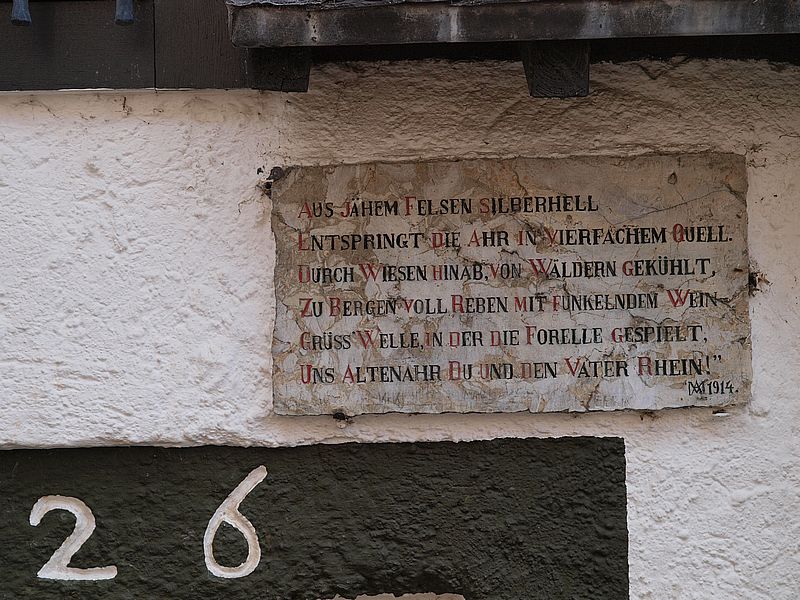 AUS JÄHEM FELSEN SILBERHELL
ENTSPRINGT DIE AHR IN VIERFACHEM QUELL.
DURCH WIESEN HINAB, VON WÄLDERN GEKÜHLT,
ZU BERGEN VOLL REBEN MIT FUNKELNDEM WEIN–
GRÜSS' WELLE, IN DER DIE FORELLE GESPIELT,
UNS ALTENAHR DU UND DEN VATER RHEIN!"
1914.
26